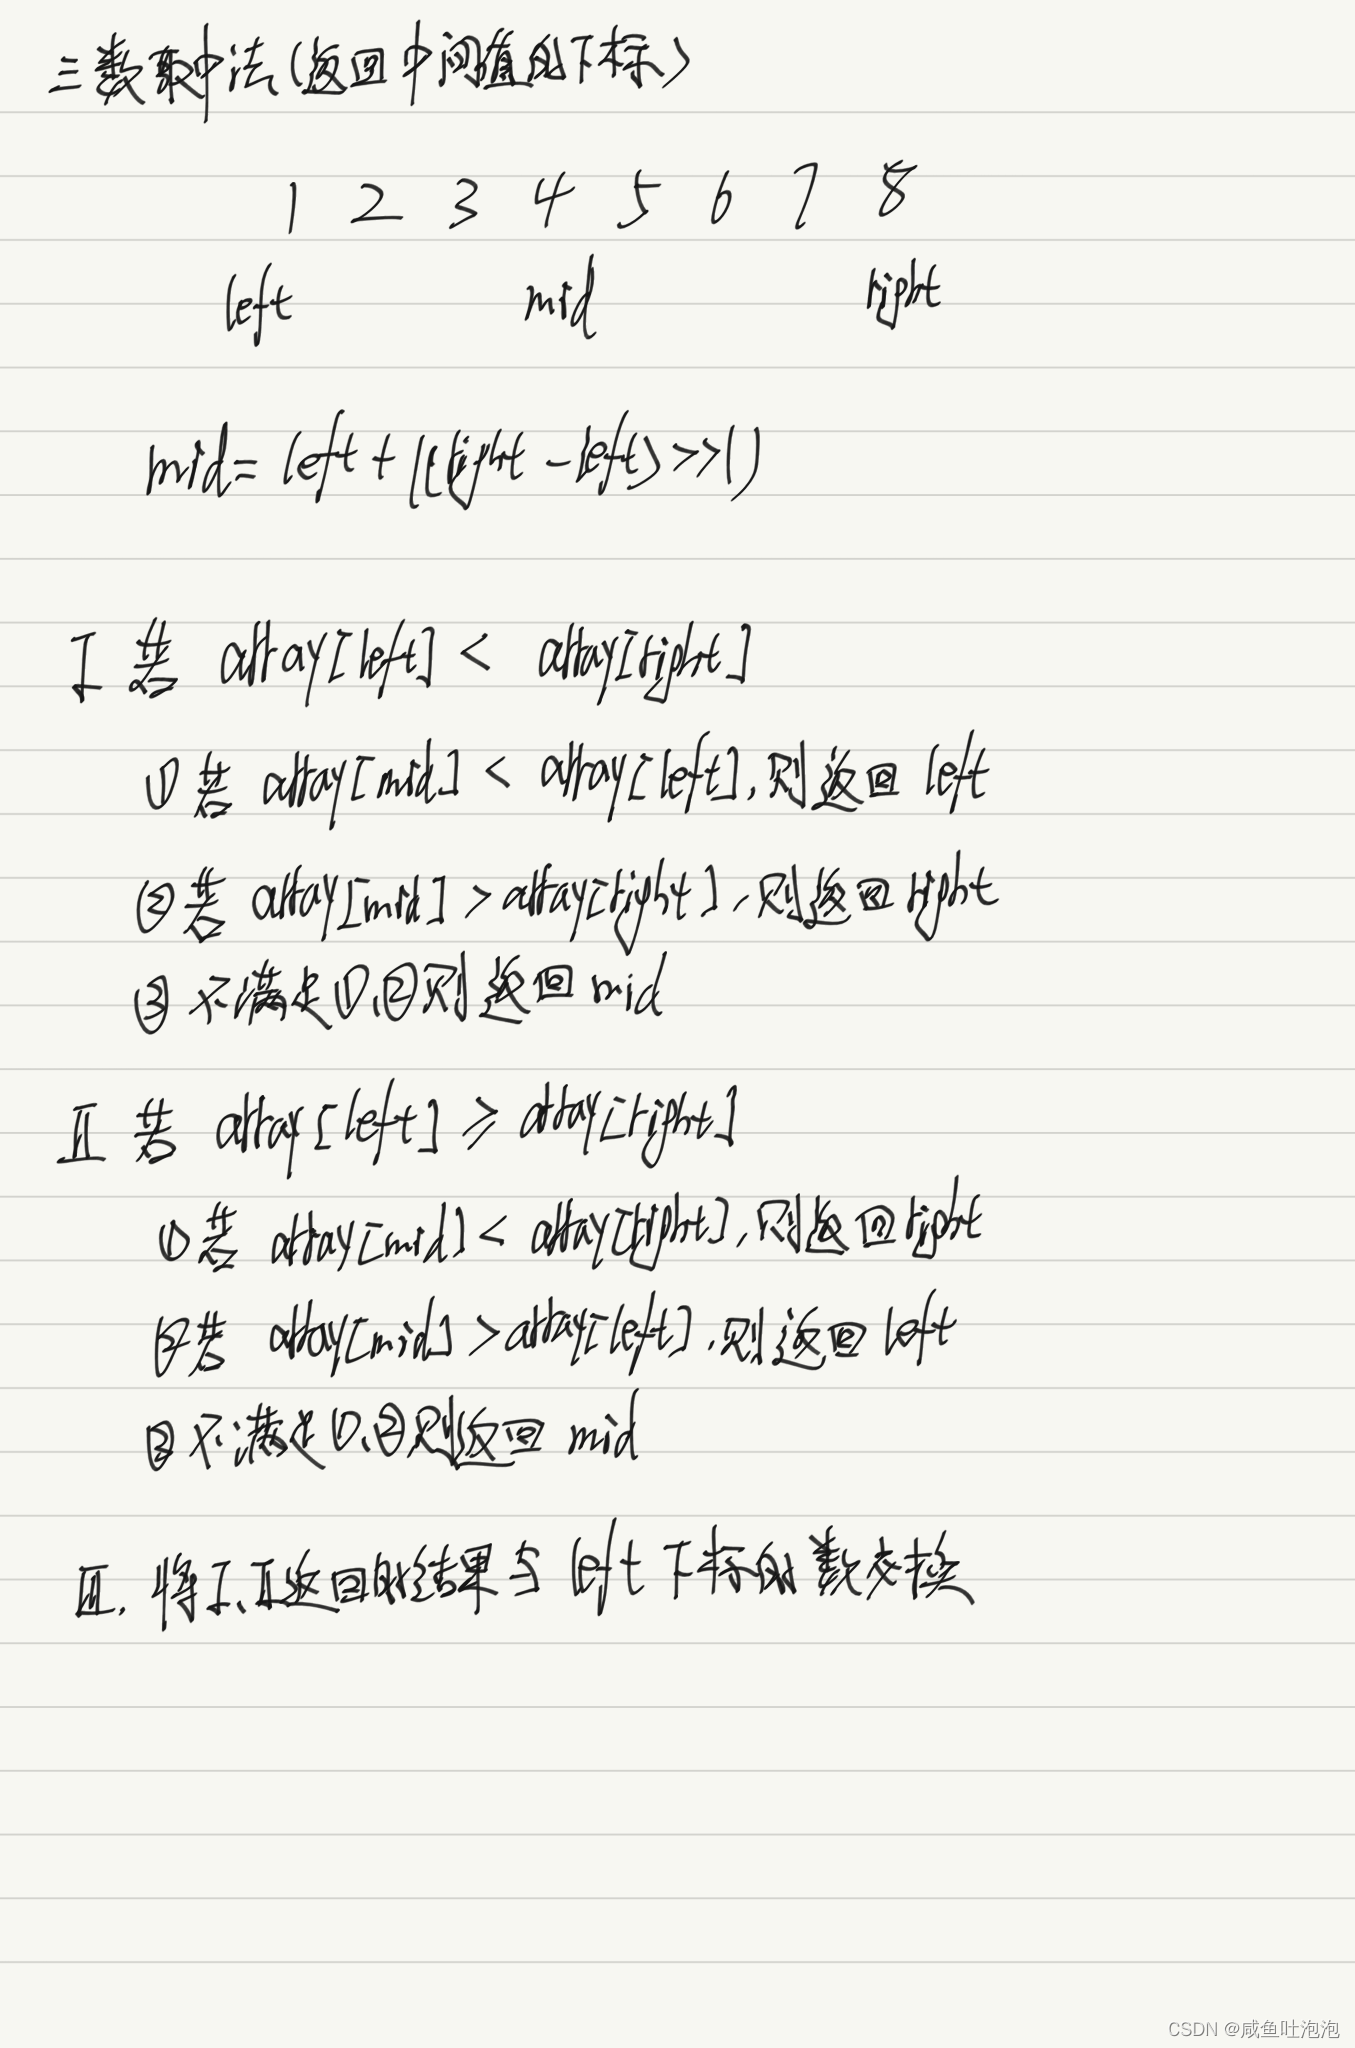 三数取中法(返回中间值的下标)
1 2 3 4 5 6 7 8
left mid right
mid = left + ((right - left) >> 1)
I 若 array[left] < array[right]
① 若 array[mid] < array[left],则返回 left
② 若 array[mid] > array[right],则返回 right
③ 不满足①、②则返回 mid
II 若 array[left] ≥ array[right]
① 若 array[mid] < array[right],则返回 right
② 若 array[mid] > array[left],则返回 left
③ 不满足①、②则返回 mid
III. 将I、II返回的结果与 left 下标的数交换
CSDN @咸鱼吐泡泡